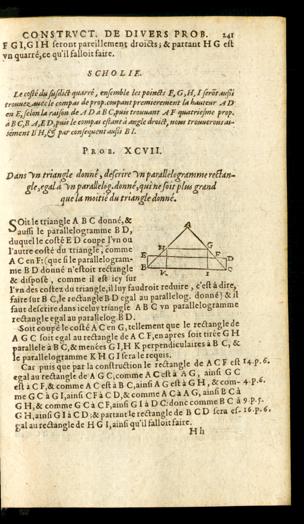 CONSTRVCT. DE DIVERS PROB. 241
F G I, G I H seront pareillement droicts; & partant H G est
vn quarré, ce qu'il falloit faire.
SCHOLIE.
Le costé du susdict quarré, ensemble les poincts F, G, H, I serõt aussi
trouuez auec le compas de prop. coupant premierement la hauteur A D
en E, selon la raison de A D à B C, puis trouuant A F quatriesme prop.
à B C, B A, E D, puis le compas estant à angle droict, nous trouuerons ai-
sément B H, & par consequent aussi B I.
PROB. XCVII.
Dans vn triangle donné, descrire vn parallelogramme rectan-
gle, egal à vn parallelog. donné, qui ne soit plus grand
que la moitié du triangle donné.
SOit le triangle A B C donné, &
aussi le parallelogramme B D,
duquel le costé E D coupe l'vn ou
l'autre costé du triangle, comme
A C en F: (que si le parallelogram-
me B D donné n'estoit rectangle
& disposé, comme il est icy sur
l'vn des costez du triangle, il luy faudroit reduire, c'est à dire,
faire sur B C, le rectangle B D egal au parallelog. donné) & il
faut descrire dans iceluy triangle A B C vn parallelogramme
rectangle egal au parallelog. B D.
Soit coupé le costé A C en G, tellement que le rectangle de
A G C soit egal au rectangle de A C F, en apres soit tirée G H
parallele à B C, & menées G I, H K perpendiculaires à B C, &
le parallelogramme K H G I sera le requis.
Car puis que par la construction le rectangle de A C F est 14. p. 6.
egal au rectangle de A G C, comme A C est à A G, ainsi G C
est à C F, & comme A C est à B C, ainsi A G est à G H, & com- 4. p. 6.
me G C à G I, ainsi C F à C D, & comme A C à A G, ainsi B C à
G H, & comme G C à C F, ainsi G I à C D: donc comme B C à 9. p. 5.
G H, ainsi G I à C D; & partant le rectangle de B C D sera es- 16. p. 6.
gal au rectangle de H G I, ainsi qu'il falloit faire.
H h
A
H G
E F D
B K I C